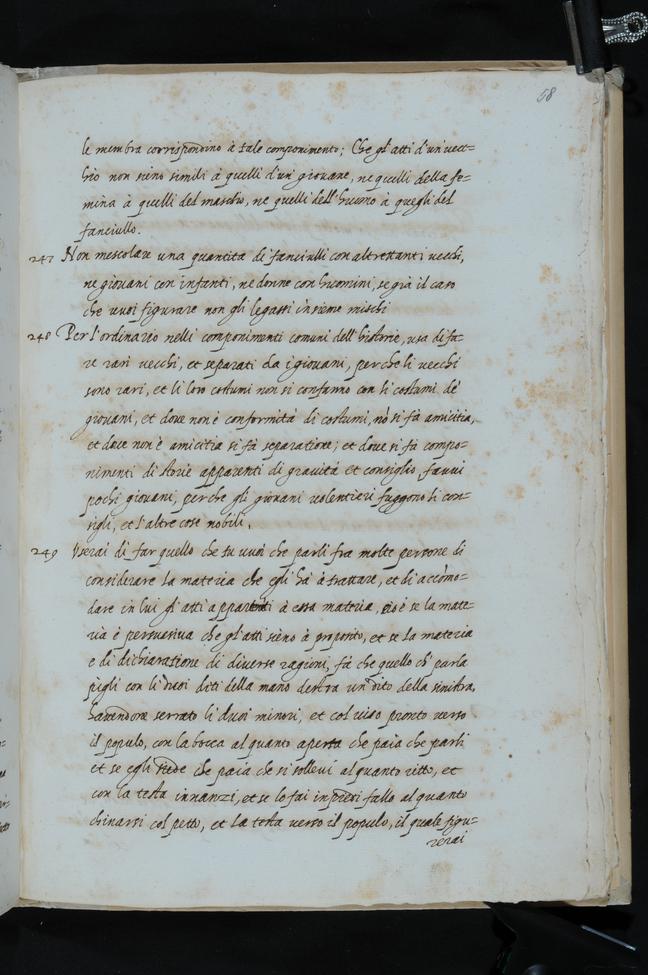 58
le membra corrispondino à tale componimento; Che gl'atti d'un vecc=
hio non sieno simili à quelli d'un giovane, ne quelli della fe=
mina à quelli del maschio, ne quelli dell'huomo à quegli del
fanciullo.
247 Non mescolare una quantita di fanciulli con altrettanti vecchi,
ne giovani con infanti, ne donne con huomini, se già il caso
che vuoi figurare non gli legassi insieme mischi
248 Per l'ordinario nelli componimenti comuni dell'historie, usa di fa=
re rari vecchi, et separati da i giovani, perche li vecchi
sono rari, et li loro costumi non si confanno con li costumi de'
giovani, et dove non è conformità di costumi, nō si fà amicitia,
et dove non è amicitia si fà separatione; et dove si fà compo=
nimenti di storie apparenti di gravità et consiglio, favvi
pochi giovani, perche gli giovani volentieri fuggono li con=
sigli, et l'altre cose nobili.
249 Userai di far quello che tu vuoi che parli fra molte persone di
considerare la materia che egli hà à trattare, et di accomo=
dare in lui gl'atti à essa materia, cioè se la mate=
ria è persuasiva che gl'atti sieno à proposito, et se la materia
e di dichiaratione di diverse ragioni, fà che quello ch' parla
pigli con li duoi diti della mano destra un dito della sinistra,
havendone serrato li duoi minori, et col viso pronto verso
il populo, con la bocca alquanto aperta che paia che parli
et se egli siede che paia che si sollevi alquanto ritto, et
con la testa innanzi, et se lo fai in piedi fallo alquanto
chinarsi col petto, et la testa verso il populo, il quale figu=
rerai